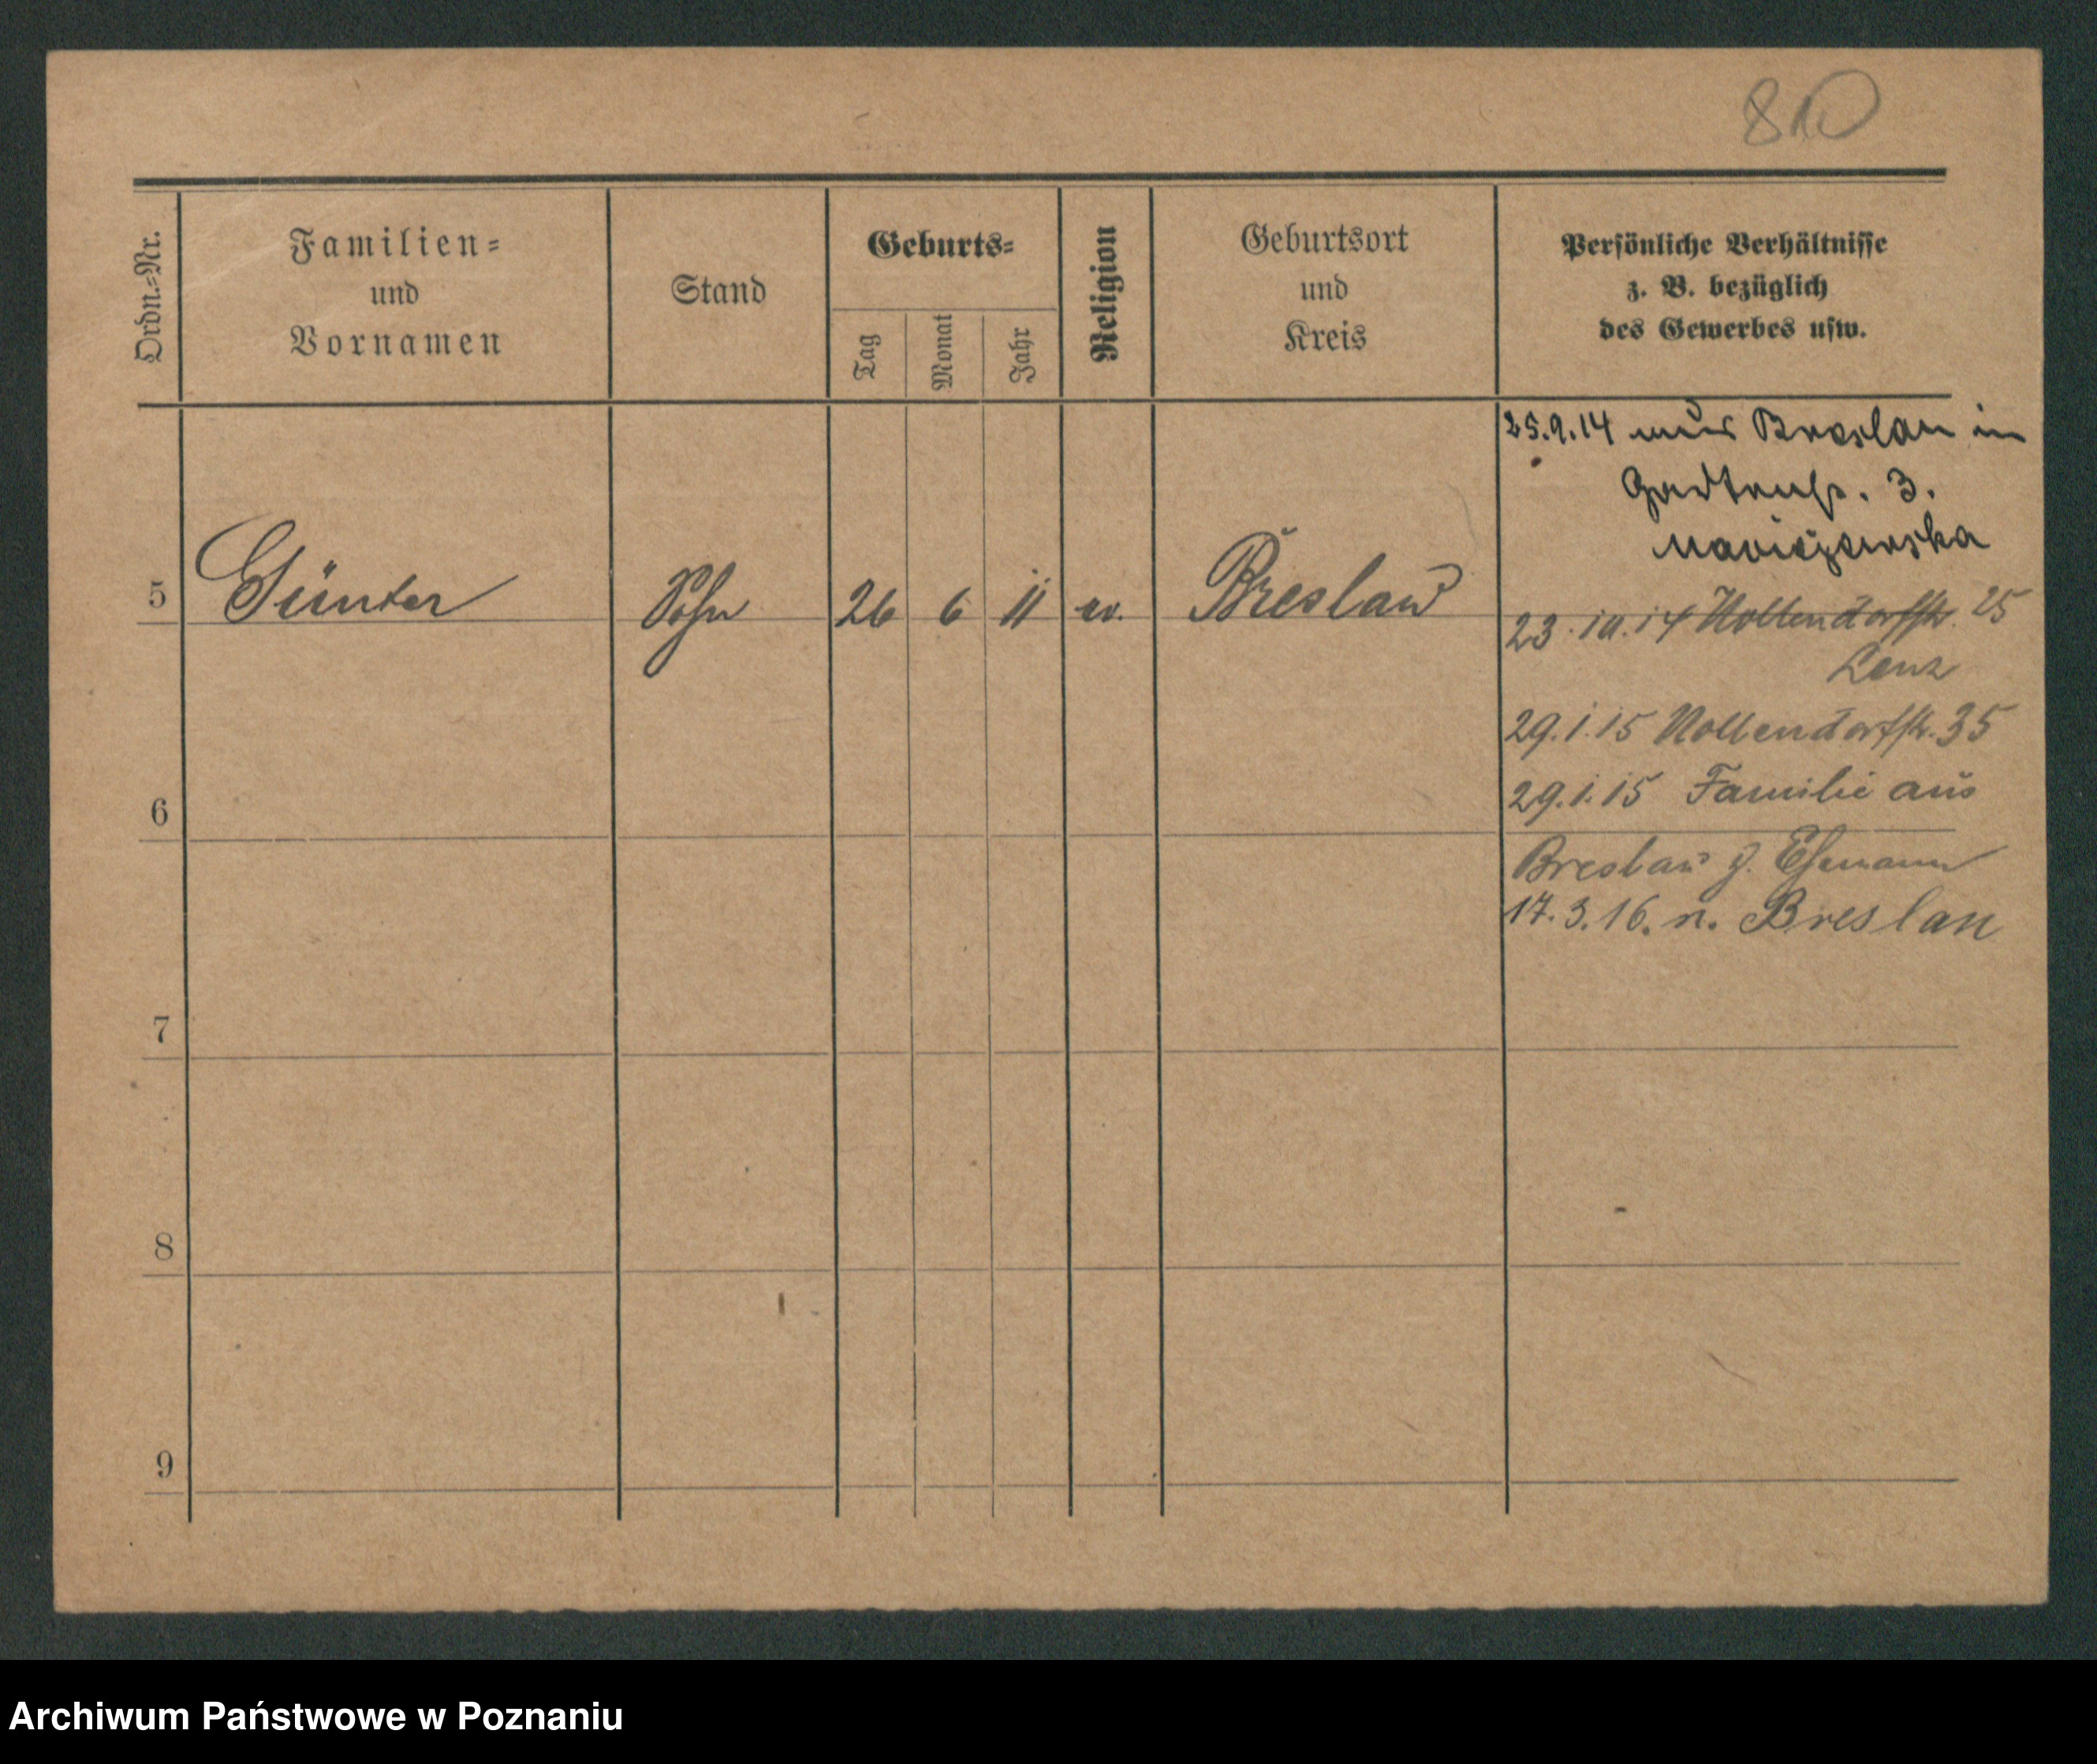 810
Ordn.-Nr.
Familien-
und
Vornamen
Stand
Geburts-
Tag
Monat
Jahr
Religion
Geburtsort
und
Kreis
Persönliche Verhältnisse
z. B. bezüglich
des Gewerbes usw.
25.9.14 aus Breslau in
3.
5 Günter Sohn 26 6 11 ev. Breslau
23.10.14 Nollendorfstr. 25
Lenz
29.1.15 Nollendorfstr. 35
29.1.15 Familie aus
6
Breslau z. Ehemann
17.3.16. n. Breslau
7
8
9
Archiwum Państwowe w Poznaniu